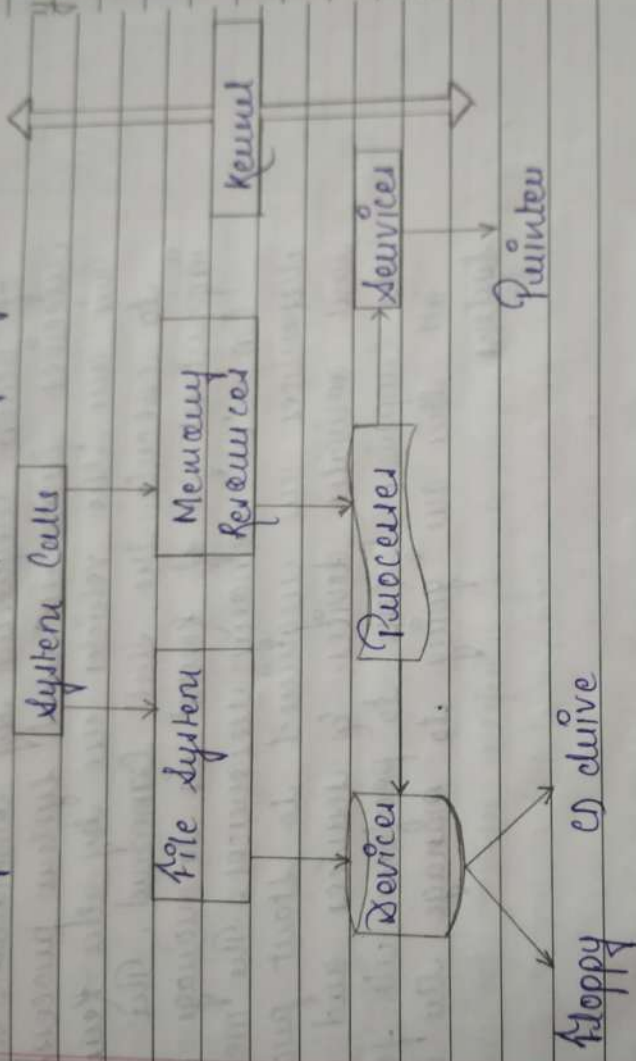 System Calls
File System
Memory
Resources
Kernel
Devices
Processes
Services
Floppy
CD drive
Printer